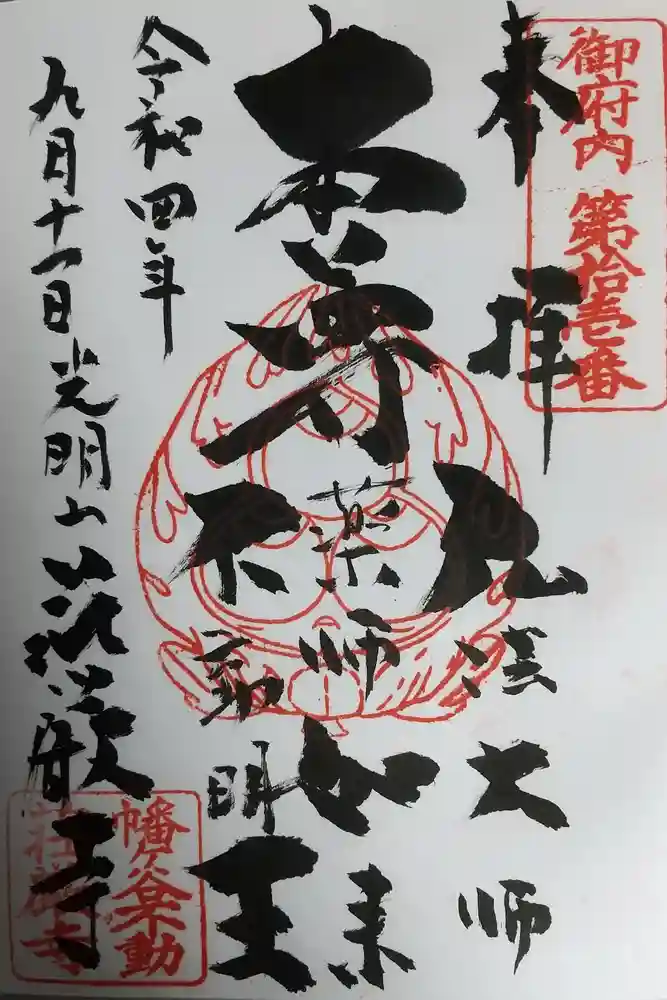 御府内 第拾壱番
奉拝
弘法大師
本尊
薬師如来
不動明王
令和四年
九月十一日 光明山 荘嚴寺
幡ヶ谷不動
荘嚴寺